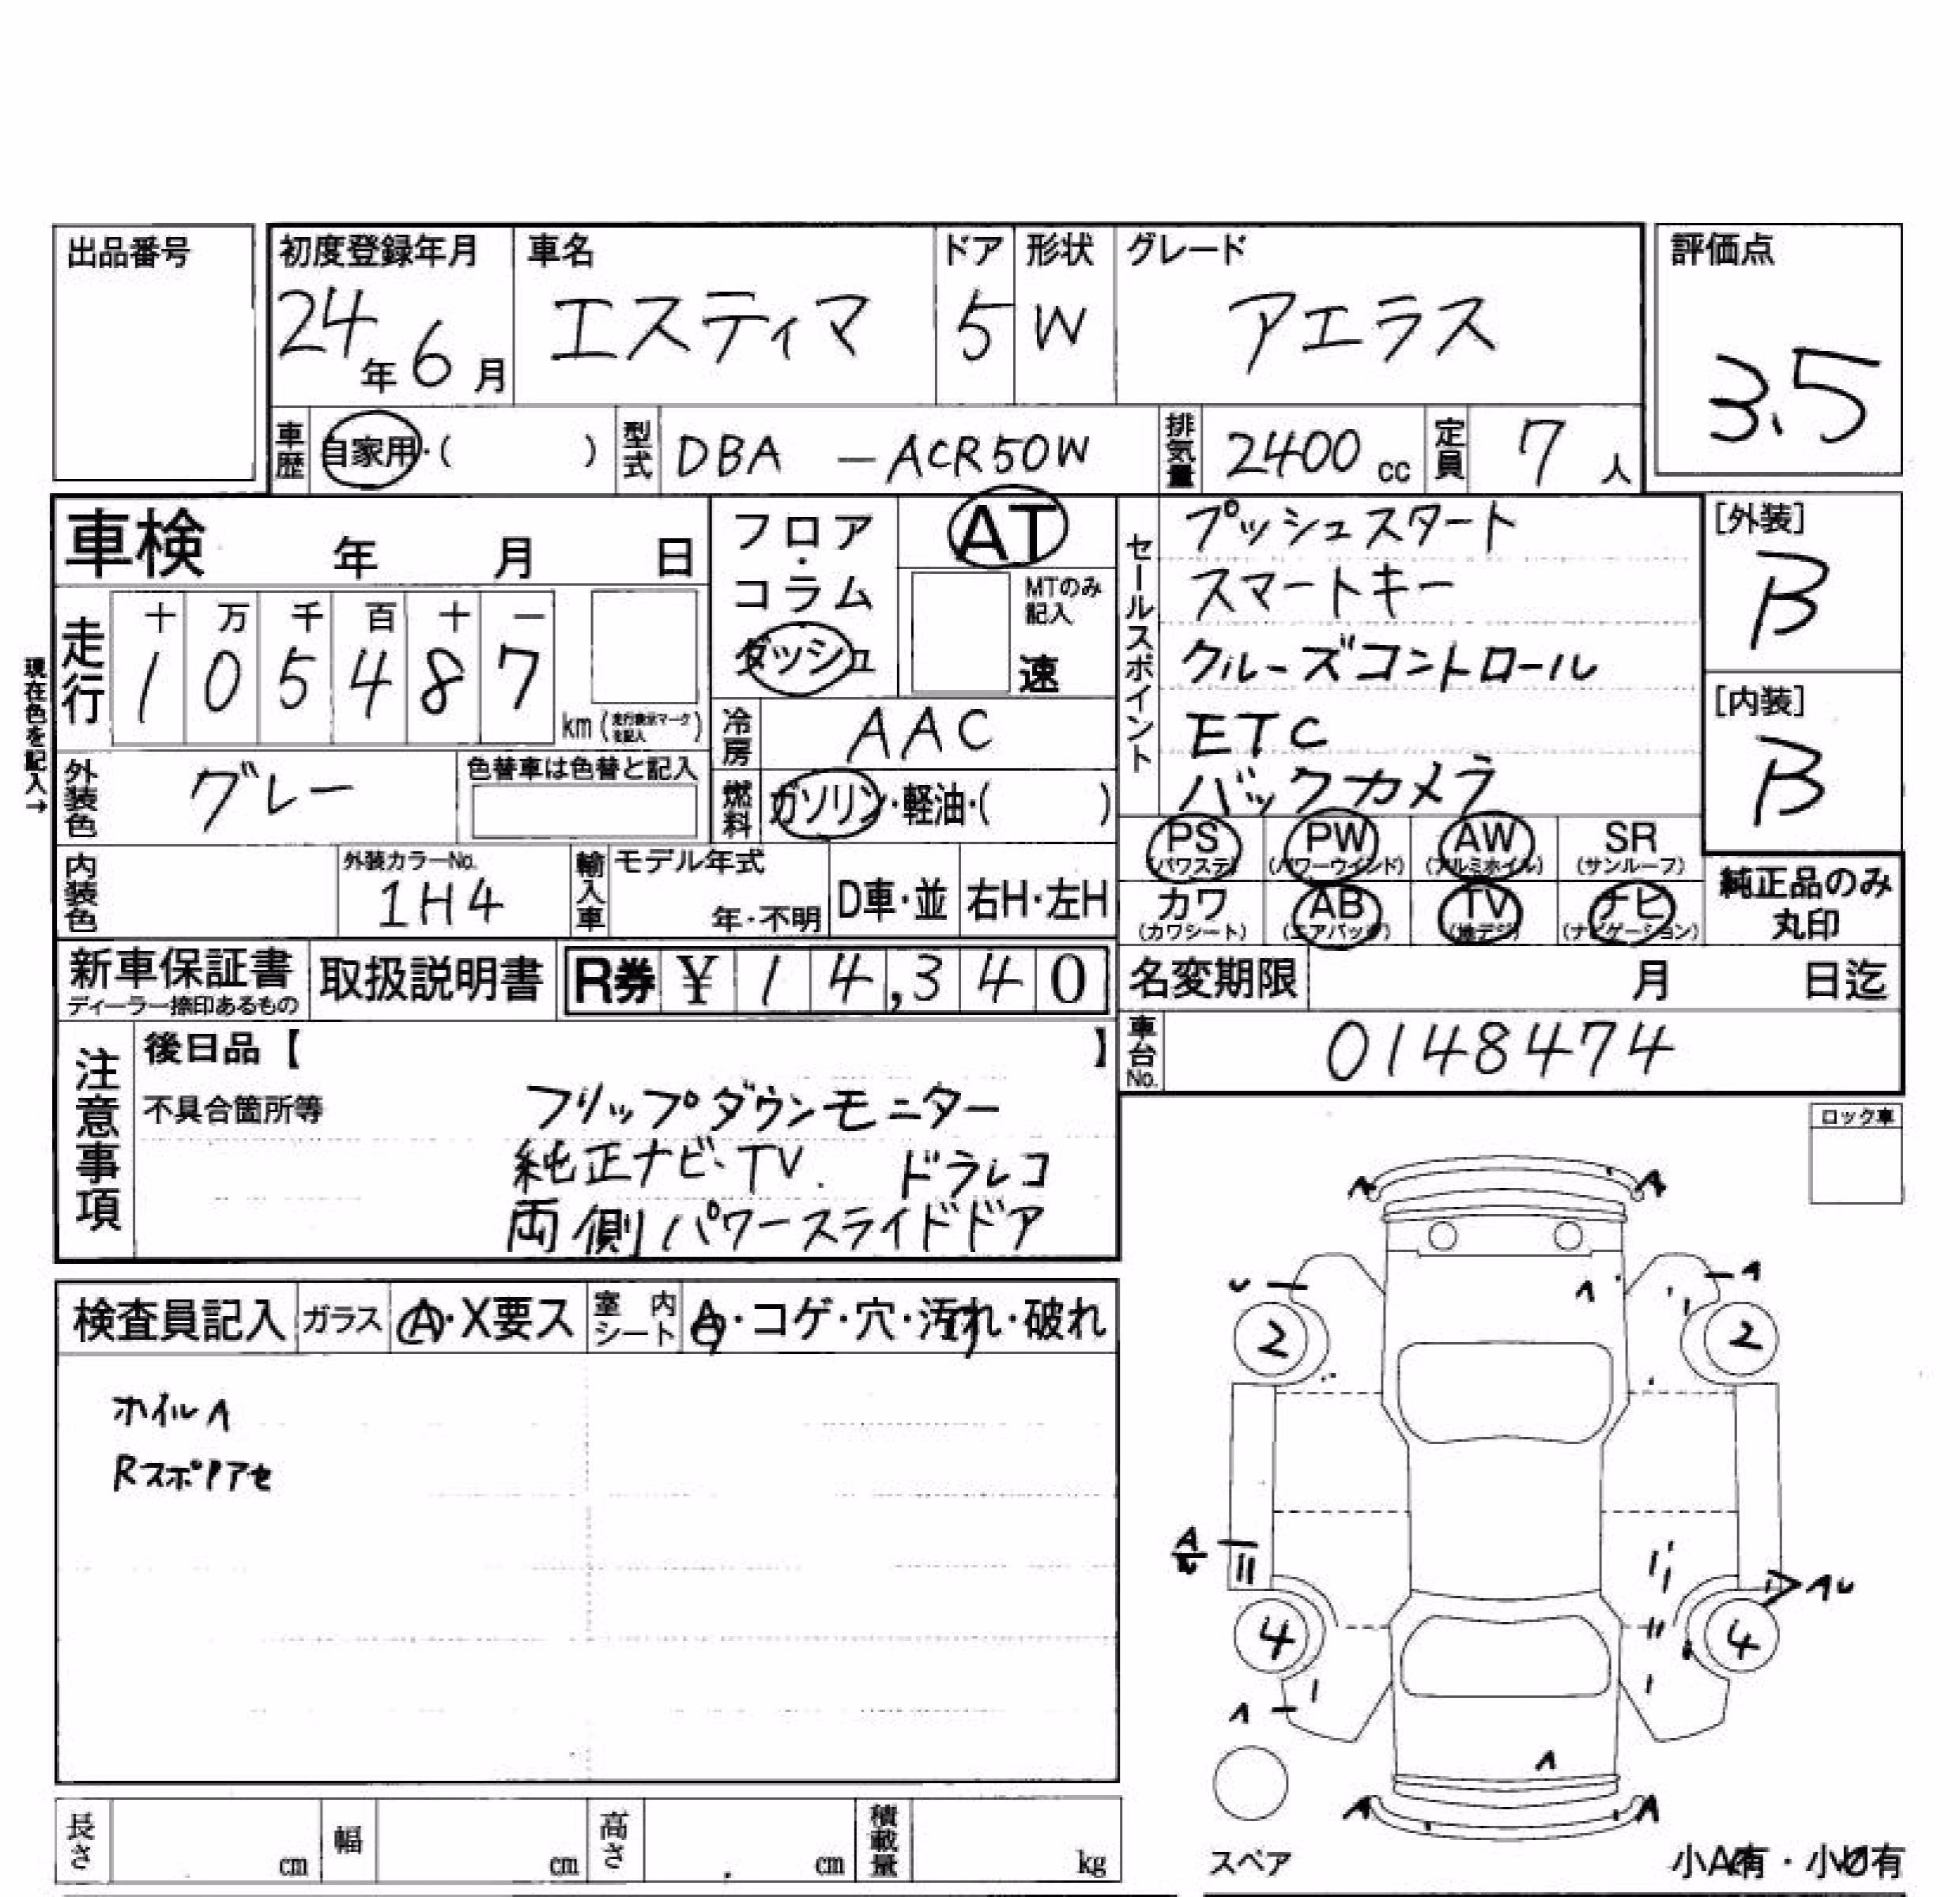 出品番号
初度登録年月 車名 ドア 形状 グレード 評価点
24年6月 エスティマ 5 W アエラス 3.5
車歴 自家用・( ) 型式 DBA -ACR50W 排気量 2400cc 定員 7人
車検 年 月 日
フロア・コラム ダッシュ
AT
MTのみ記入
速
セールスポイント
プッシュスタート
スマートキー
クルーズコントロール
ETC
バックカメラ
[外装]
B
[内装]
B
現在色を記入→
走行 十 万 千 百 十 一
1 0 5 4 8 7 km
冷房 AAC
外装色 グレー 色替車は色替と記入
燃料 ガソリン・軽油・( )
PS PW AW SR
(パワステ) (パワーウインド) (アルミホイル) (サンルーフ)
カワ AB TV ナビ
(カワシート) (エアバッグ) (地デジ) (ナビゲーション)
純正品のみ
丸印
内装色 外装カラーNo. 1H4 輸入車 モデル年式 年・不明 D車・並 右H・左H
新車保証書 取扱説明書 R券 ¥ 14,340
ディーラー捺印あるもの
名変期限 月 日迄
車台No. 0148474
注意事項
後日品【 】
不具合箇所等 フリップダウンモニター
純正ナビ・TV. ドラレコ
両側パワースライドドア
ロック車
検査員記入 ガラス A・X要ス 室内シート A・コゲ・穴・汚れ・破れ
ホイルA
A A
U A
A
2 2
A AU
4 4
A
A
A A
スペア
小A有・小U有
長さ cm 幅 cm 高さ cm 積載量 kg